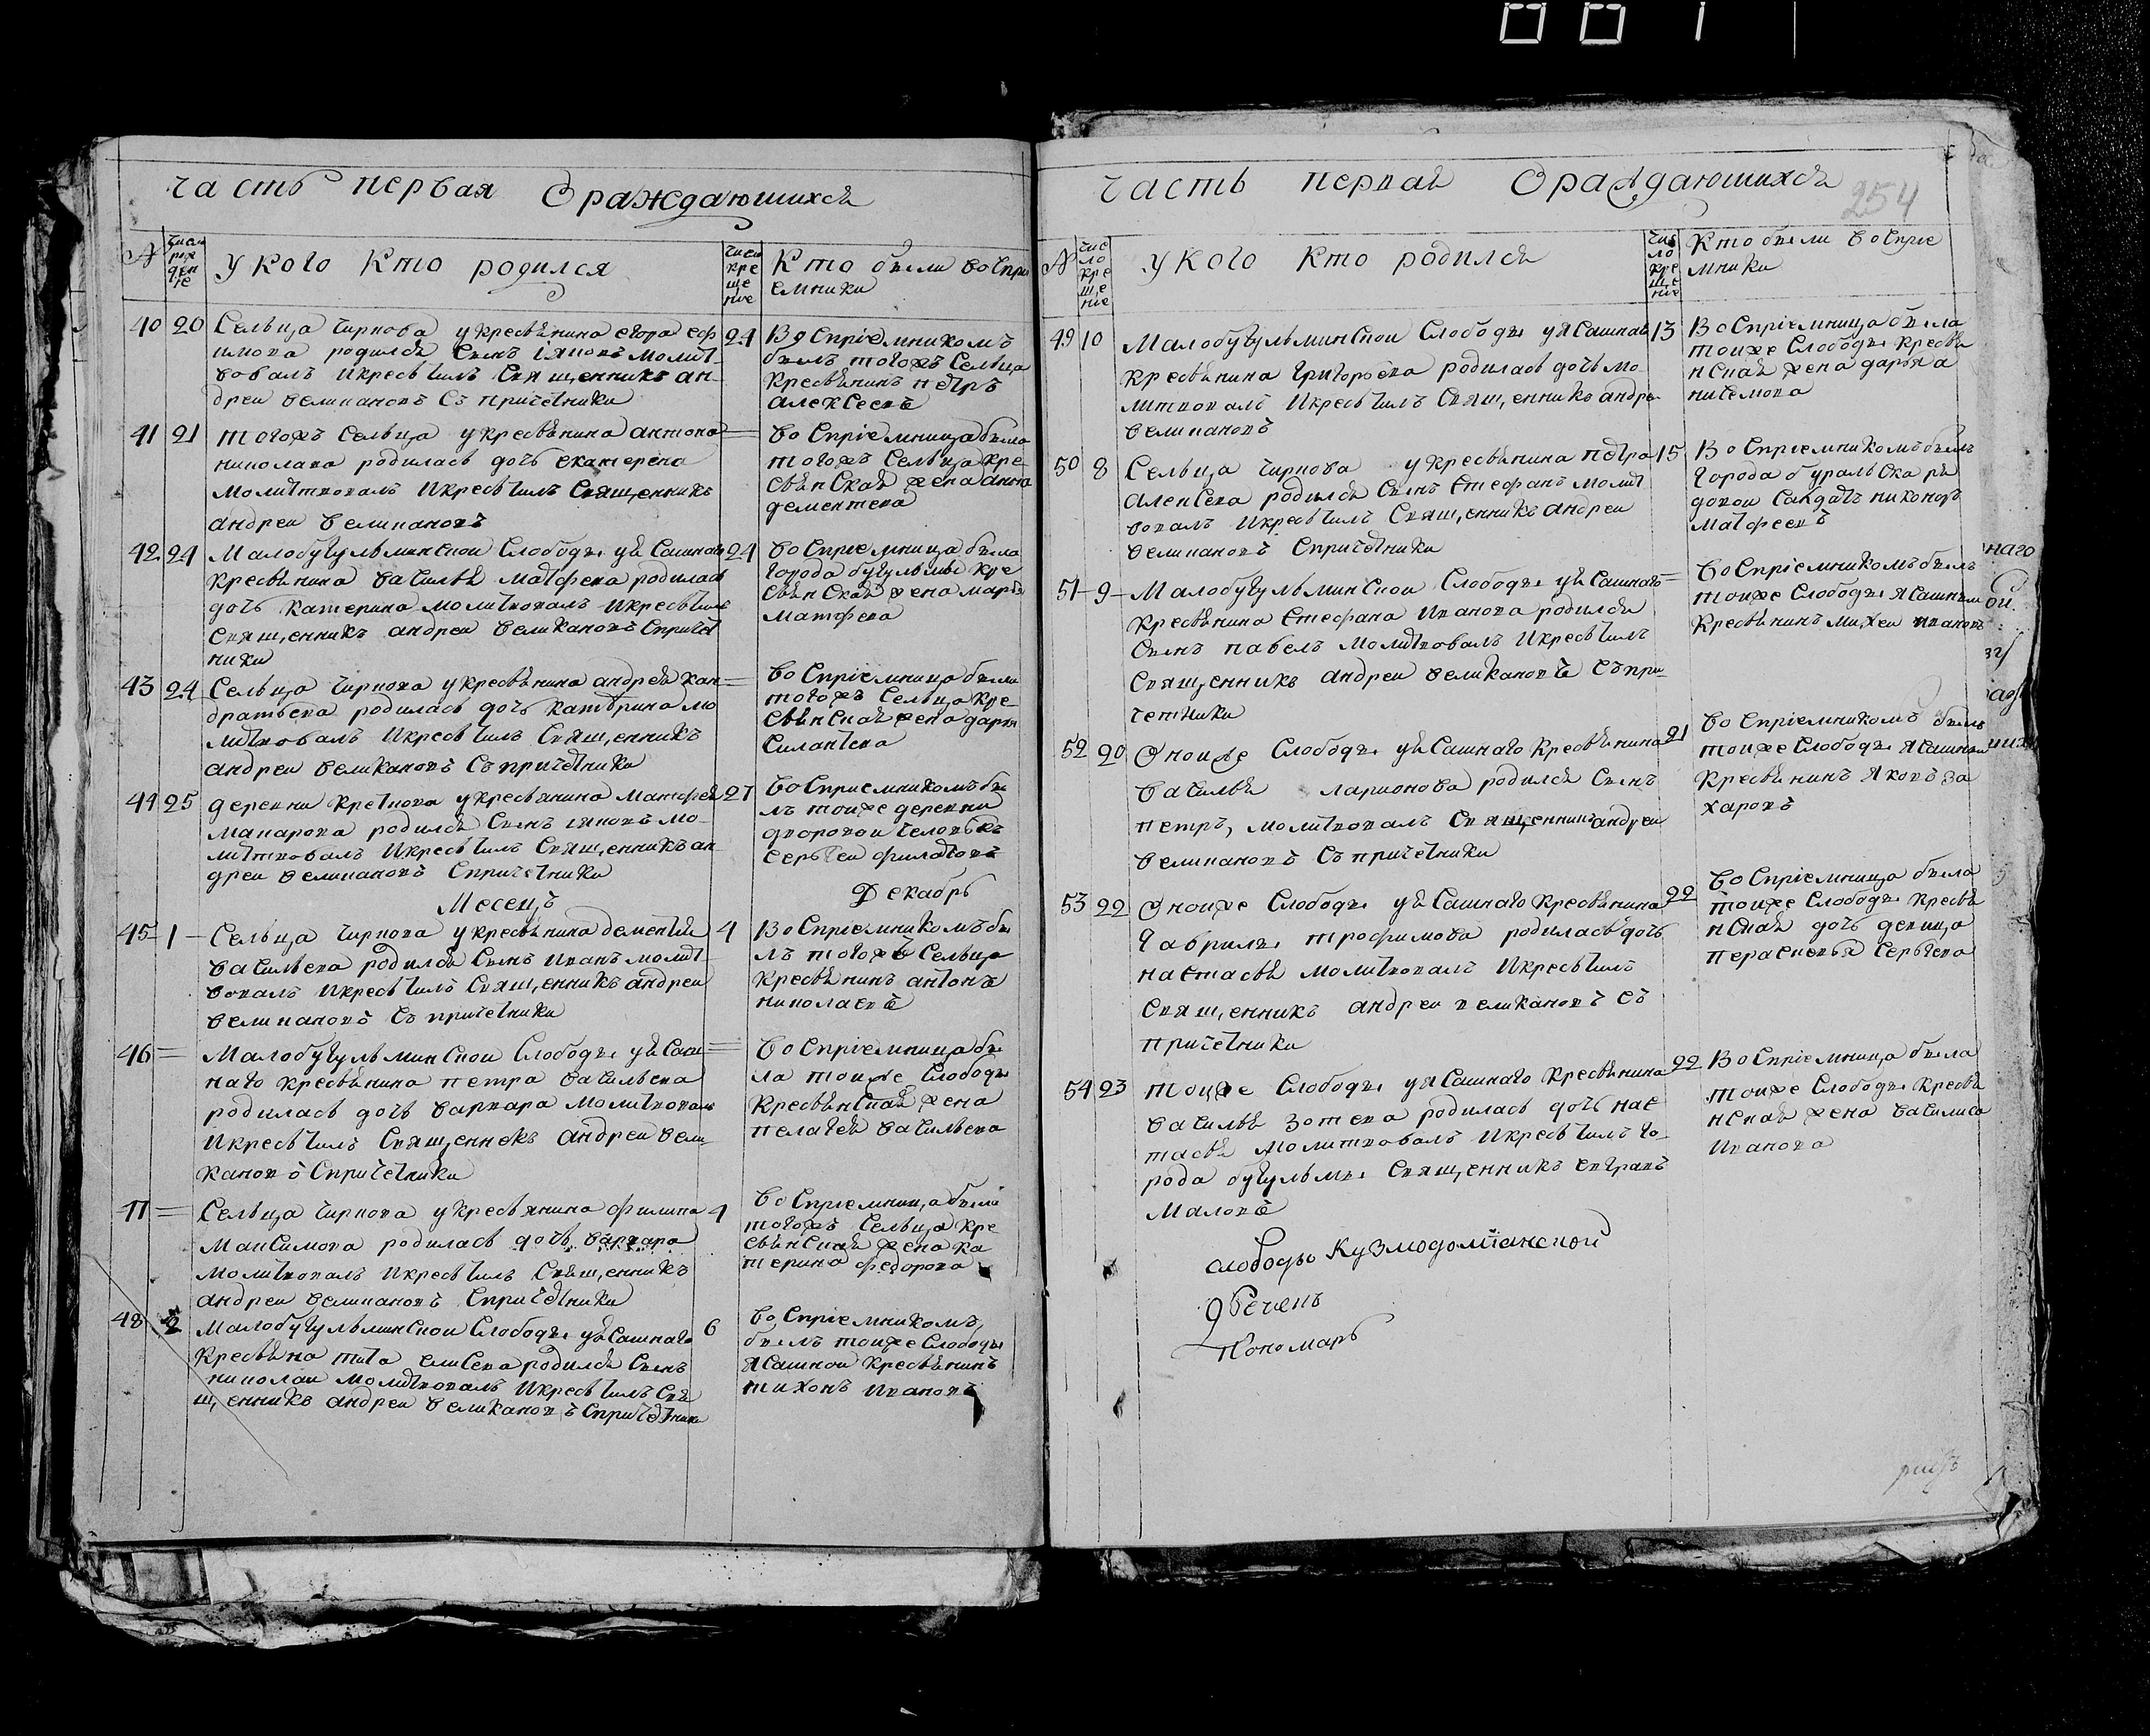 часть первая Ораждающихся
№
число рожденіе
у кого кто родился
число крещеніе
Кто были воспри
емники
40 20 Сельца Чиркова у кресьянина егора еф
имова родился сынъ іяковъ молит
вовалъ и кресьтилъ священникъ ан
дреи великановъ съ причетники
24 Воспріемникомъ
былъ тогожъ сельца
кресьянинъ петръ
алексеевъ
41 21 тогожъ сельца у кресьянина антона
николава родилась дочь екатерена
молитвовалъ и кресьтилъ священникъ
андреи великановъ
= воспріемница была
тогожъ сельца кре
сьянская жена анна
дементева
42 24 Малобугульминской слободы уясашнаго
кресьянина василья матфева родилась
дочь катерина молитвовалъ и кресьтилъ
священникъ андреи великановъ спричет
ники
24 воспріемница была
города бугульмы кре
сьянская жена марья
матфева
43 24 Сельца Чиркова у кресьянина андрея кан
дратьева родилась дочь катерина мо
литвовалъ и кресьтилъ священникъ
андреи великановъ съ причетники
= воспріемница была
тогожъ сельца кре
сьянская жена дарья
силантева
44 25 деревни креткова у кресьянина матфея
макарова родился сынъ іяковъ мо
литвовалъ и кресьтилъ священникъ ан
дреи великановъ спричетники
27 воспріемникомъ бы
лъ тоиже деревни
дворовои человекъ
сергеи филатовъ
Месецъ Декабрь
45 1 Сельца Чиркова у кресьянина дементия
васильева родился сынъ иванъ молит
вовалъ и кресьтилъ священникъ андреи
великановъ съ причетники
4 Воспріемникомъ бы
лъ тогожъ сельца
кресьянинъ антонъ
николаевъ
46 = Малобугульминской слободы уясаш
наго кресьянина петра васильева
родилась дочь варвара молитвовалъ
и кресьтилъ священнекъ андреи вели
кановъ спричетники
= воспріемница бы
ла тоиже слободы
кресьянская жена
пелагея васильева
47 = Сельца Чиркова у кресьянина филипа
максимова родилась дочь варвара
молитвовалъ и кресьтилъ священникъ
андреи великановъ спричетники
4 воспріемница была
тогожъ сельца кре
сьянская жена ка
терина федорова
48 2 Малобугульминской слободы уясашнаго
кресьянина тита елисева родился сынъ
николаи молитвовалъ и кресьтилъ свя
щенникъ андреи великановъ спричетники
6 воспріемникомъ
былъ тоиже слободы
ясашнои кресьянинъ
тихонъ ивановъ
часть первая Ораждающихся
254
№
число крещеніе
у кого кто родился
число крещеніе
Кто были воспріе
мники
49 10 Малобугульминской слободы у ясашнаго
кресьянина григорьева родилась дочь мо
литвовалъ и кресьтилъ священникъ андреи
великановъ
13 Воспріемница была
тоиже слободы кресья
нская жена дарья а
нисимова
50 8 Сельца Чиркова у кресьянина петра
алексева родился сынъ стефанъ молит
вовалъ и кресьтилъ священникъ андреи
великановъ спричетники
15 Воспріемникомъ былъ
города буральска ря
довои салдатъ никоноръ
матфеевъ
51 9 Малобугульминской слободы уясашнаго
кресьянина стефана иванова родился
сынъ павелъ молитвовалъ и кресьтилъ
священникъ андреи великановъ съпри
четники
= воспріемникомъ былъ
тоиже слободы ясашныи
кресьянинъ михеи ивановъ
52 20 Оноиже слободы уясашнаго кресьянина
василья ларионова родился сынъ
петръ, молитвовалъ священникъ андреи
великановъ съ причетники
21 воспріемникомъ былъ
тоиже слободы ясашныи
кресьянинъ яковъ за
харовъ
53 22 Оноиже слободы уясашнаго кресьянина
гаврилы трофимова родилась дочь
настасья молитвовалъ и кресьтилъ
священникъ андреи великановъ съ
причетники
22 воспріемница была
тоиже слободы кресья
нская дочь девица
перасковья сергева
54 23 тоиже слободы у ясашнаго кресьянина
василья зотева родилась дочь нас
тасья молитвовалъ и кресьтилъ го
рода бугульмы священникъ евграѳъ
маловъ
22 Воспріемница была
тоиже слободы кресья
нская жена василиса
иванова
слободы Кузмодомианской
Пономарь